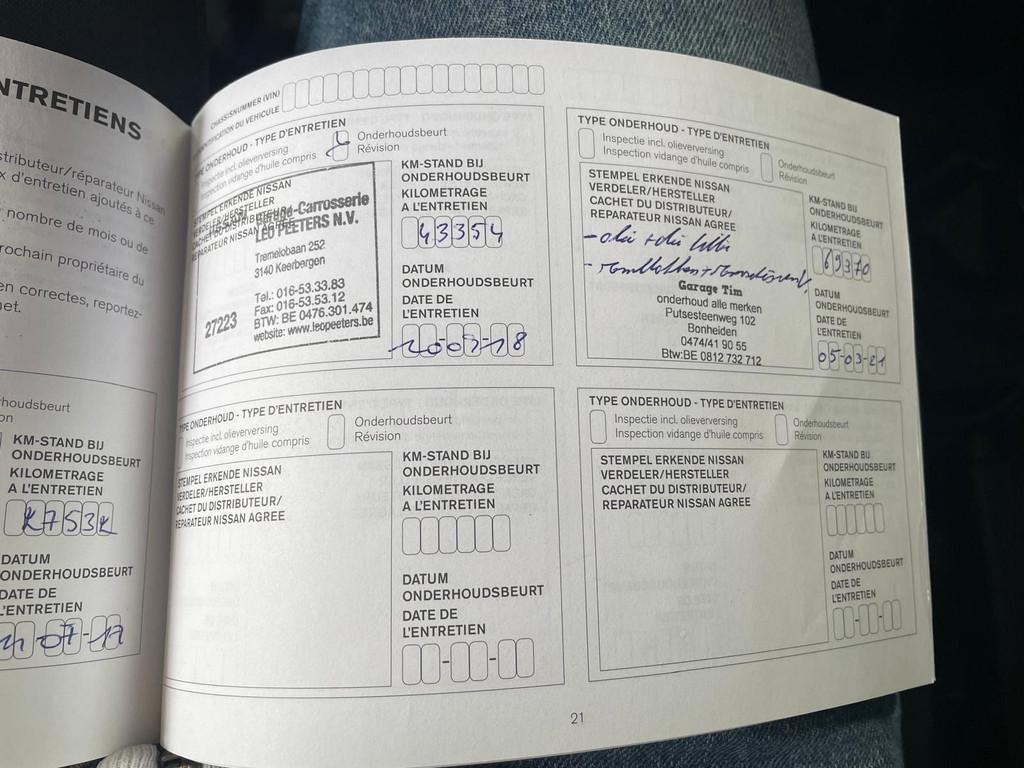 NTRETIENS
stributeur/réparateur Nissan
x d'entretien ajoutés à ce
nombre de mois ou de
rochain propriétaire du
en correctes, reportez-
net.
houdsbeurt
on
KM-STAND BIJ
ONDERHOUDSBEURT
KILOMETRAGE
A L'ENTRETIEN
DATUM
ONDERHOUDSBEURT
DATE DE
L'ENTRETIEN
07-17
CHASSISNUMMER (VIN)
IDENTIFICATION DU VEHICULE
TYPE ONDERHOUD - TYPE D'ENTRETIEN
Inspectie incl. olieverversing
Inspection vidange d'huile compris
Onderhoudsbeurt
Révision
STEMPEL ERKENDE NISSAN
VERDELER/HERSTELLER
CACHET DU DISTRIBUTEUR/
REPARATEUR NISSAN AGREE
Garage-Carrosserie
LEO PEETERS N.V.
Tremelobaan 252
3140 Keerbergen
Tel.: 016-53.33.83
Fax: 016-53.53.12
BTW: BE 0476.301.474
website: www.leopeeters.be
27223
KM-STAND BIJ
ONDERHOUDSBEURT
KILOMETRAGE
A L'ENTRETIEN
43354
DATUM
ONDERHOUDSBEURT
DATE DE
L'ENTRETIEN
TYPE ONDERHOUD - TYPE D'ENTRETIEN
Inspectie incl. olieverversing
Inspection vidange d'huile compris
Onderhoudsbeurt
Révision
STEMPEL ERKENDE NISSAN
VERDELER/HERSTELLER
CACHET DU DISTRIBUTEUR/
REPARATEUR NISSAN AGREE
Garage Tim
onderhoud alle merken
Putsesteenweg 102
Bonheiden
0474/41 90 55
Btw:BE 0812 732 712
KM-STAND BIJ
ONDERHOUDSBEURT
KILOMETRAGE
A L'ENTRETIEN
69370
DATUM
ONDERHOUDSBEURT
DATE DE
L'ENTRETIEN
05-03-21
TYPE ONDERHOUD - TYPE D'ENTRETIEN
Inspectie incl. olieverversing
Inspection vidange d'huile compris
Onderhoudsbeurt
Révision
STEMPEL ERKENDE NISSAN
VERDELER/HERSTELLER
CACHET DU DISTRIBUTEUR/
REPARATEUR NISSAN AGREE
KM-STAND BIJ
ONDERHOUDSBEURT
KILOMETRAGE
A L'ENTRETIEN
DATUM
ONDERHOUDSBEURT
DATE DE
L'ENTRETIEN
TYPE ONDERHOUD - TYPE D'ENTRETIEN
Inspectie incl. olieverversing
Inspection vidange d'huile compris
Onderhoudsbeurt
Révision
STEMPEL ERKENDE NISSAN
VERDELER/HERSTELLER
CACHET DU DISTRIBUTEUR/
REPARATEUR NISSAN AGREE
KM-STAND BIJ
ONDERHOUDSBEURT
KILOMETRAGE
A L'ENTRETIEN
DATUM
ONDERHOUDSBEURT
DATE DE
L'ENTRETIEN
21